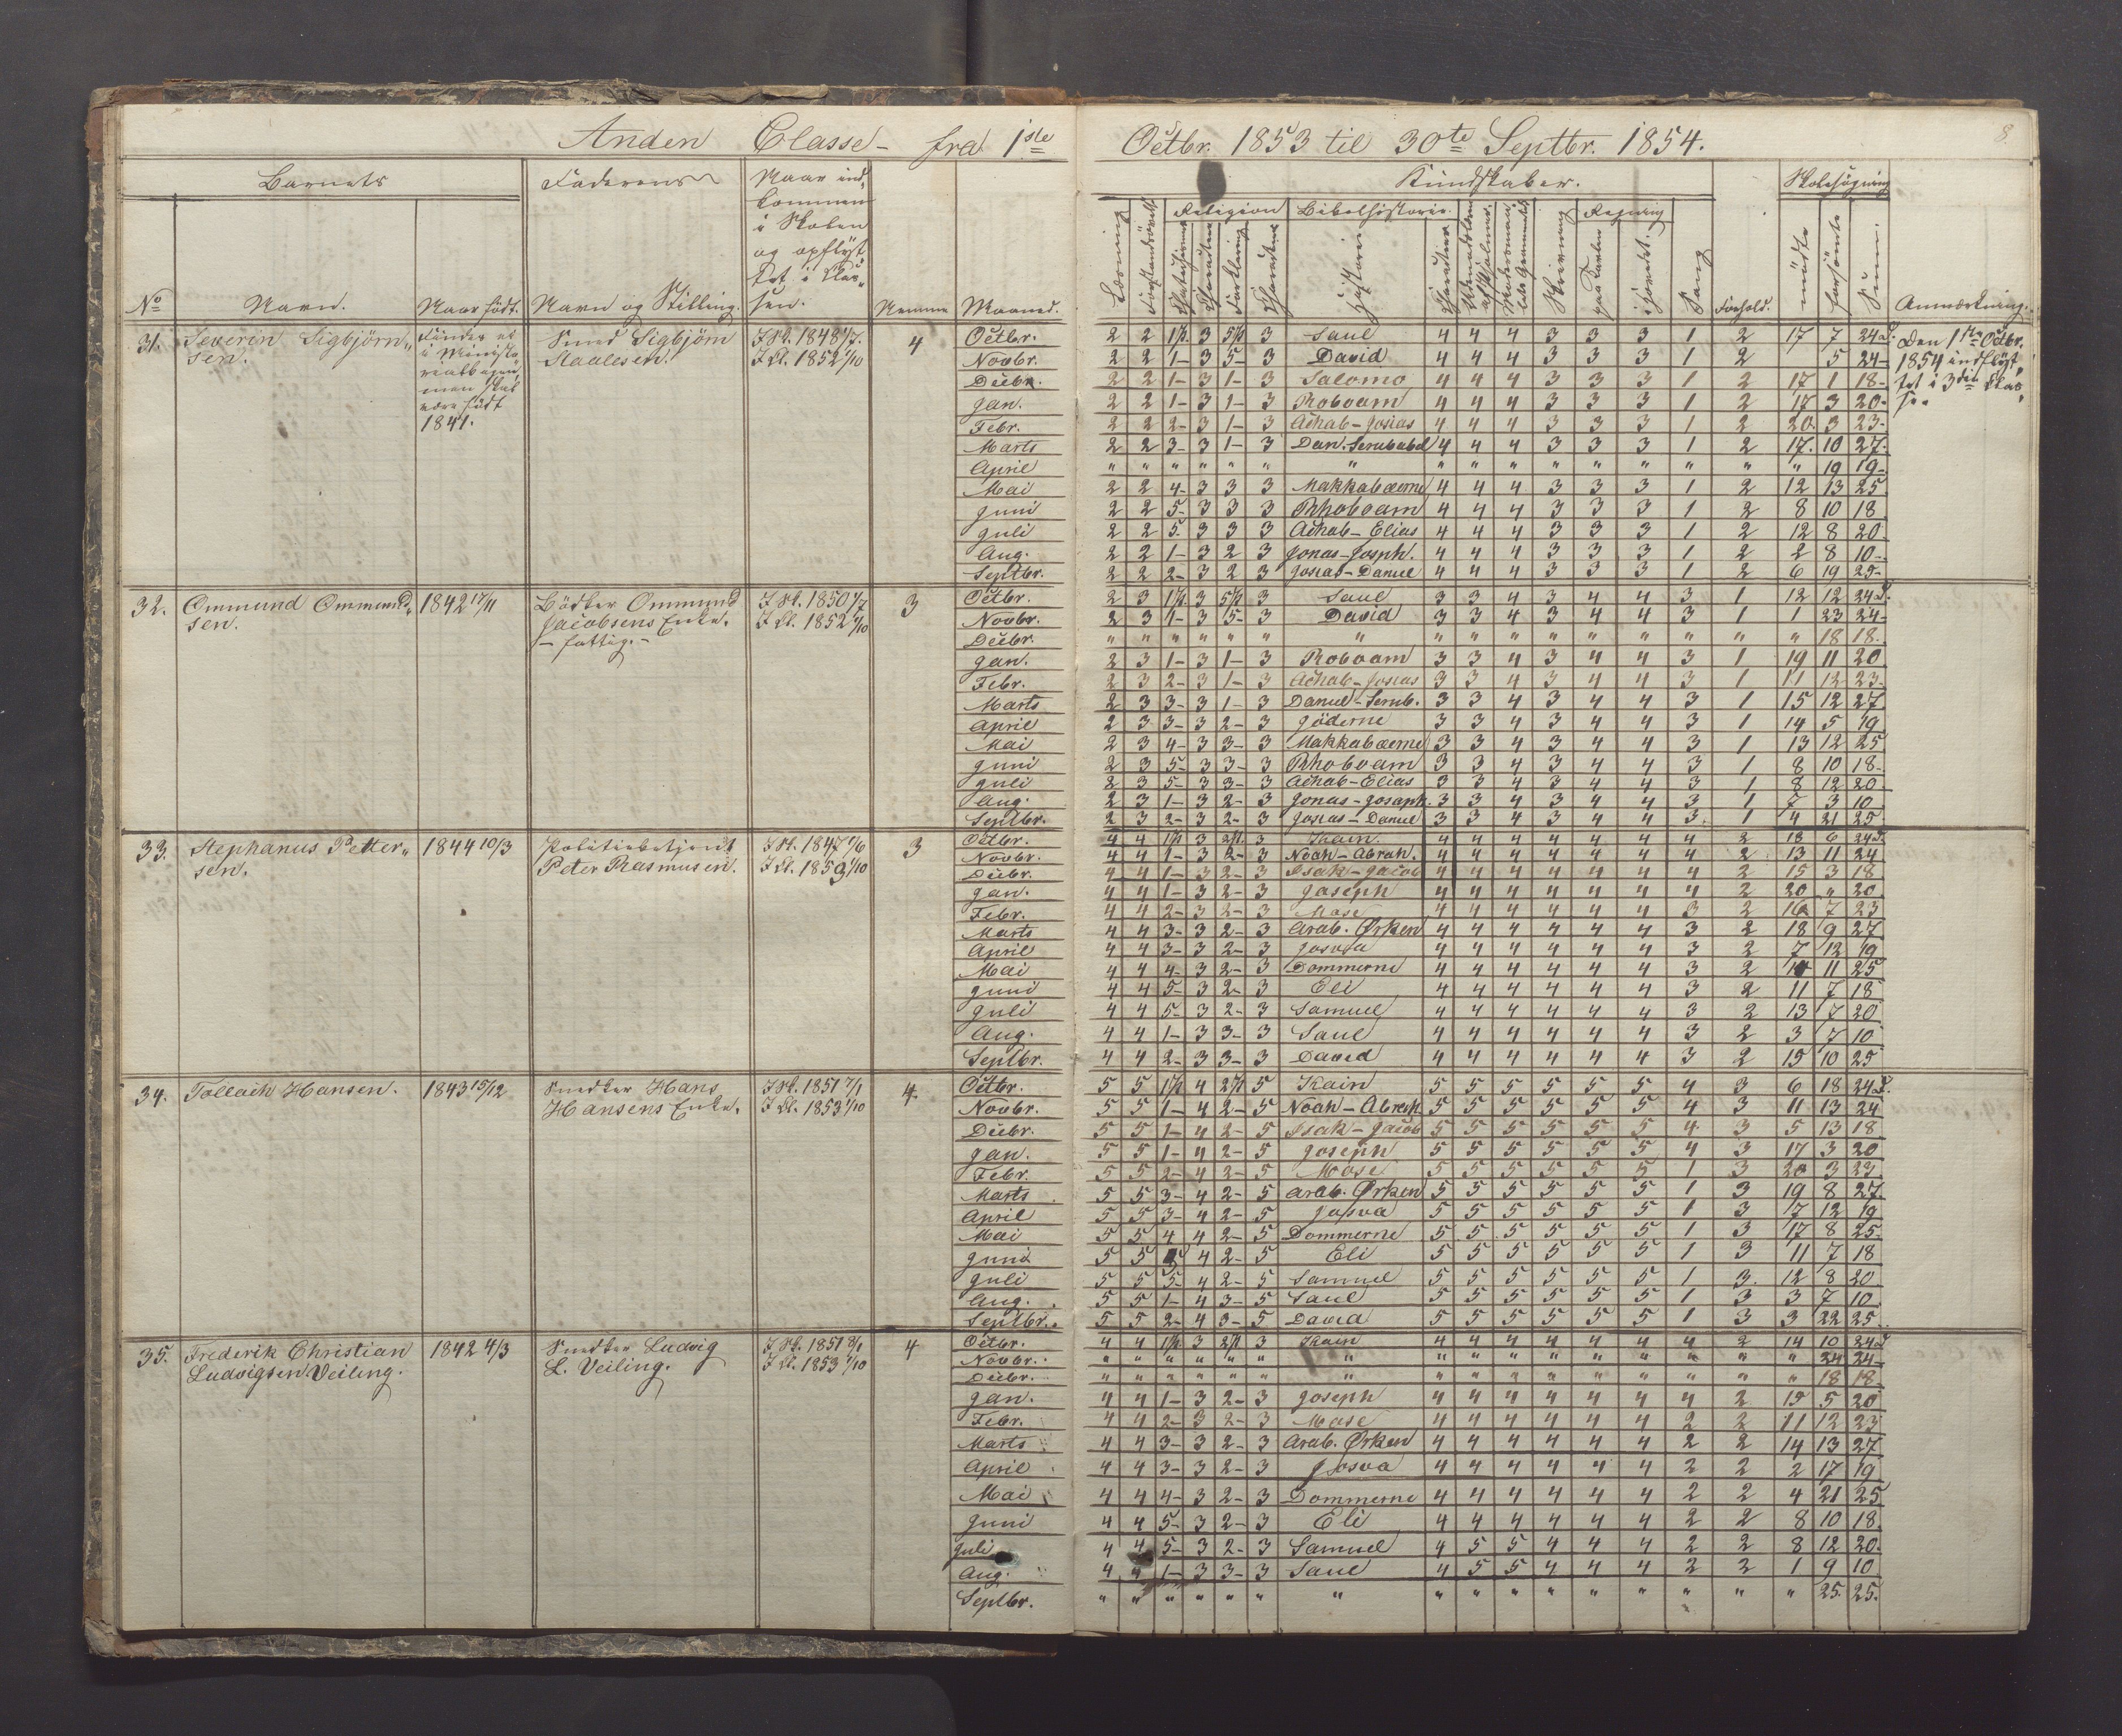 Anden Classe - fra 1ste Octbr. 1853 til 30te Septbr. 1854.
8
Barnets
Faderens
Naar ind-
kommen
i Skolen
og opflyt-
tet i Klas-
sen.
No
Navn.
Naar født.
Navn og Stilling.
Nemme
Maaned.
Kundskaber.
Skolesøgning
Religion
Bibelhistorie
Regning
Læsning
Historie
Skrivning
paa Tavlen
i Hovedet.
Sang
Forhold.
mødte
forsømte
Sum.
Anmærkning.
31. Severin Sigbjørn-
sen.
født
1841.
Smed Sigbjørn
Staalesen.
I Sk. 1848 1/7.
I Kl. 1852 1/10
4
Octbr. 2 2 1ste P. 3 5te P. 3 Saul 4 4 4 3 3 3 1 2 17 7 24 D.
Novbr. 2 2 1- 3 5- 3 David 4 4 4 3 3 3 1 2 5 24-
Decbr. 2 2 1- 3 1- 3 Salomo 4 4 4 3 3 3 1 2 17 1 18-
Jan. 2 2 1- 3 1- 3 Roboam 4 4 4 3 3 3 1 2 17 3 20-
Febr. 2 2 2- 3 1- 3 Achab-Josias 4 4 4 3 3 3 1 2 20 3 23-
Marts 2 2 3- 3 1- 3 Dan. Serubabel 4 4 4 3 3 3 1 2 17. 10 27.
April " " " " " " " " " " " " " " " " 19 19-
Mai 2 2 4- 3 3 3 Makkabæerne 4 4 4 3 3 3 1 2 12 13 25
Juni 2 2 5- 3 3 3 Rhoboam 4 4 4 3 3 3 1 2 8 10 18
Juli 2 2 5- 3 3 3 Achab-Elias 4 4 4 3 3 3 1 2 12 8 20
Aug. 2 2 1- 3 2 3 Jonas-Josaph. 4 4 4 3 3 3 1 2 2 8 10-
Septbr. 2 2 2- 3 2 3 Josias-Daniel 4 4 4 3 3 3 1 2 6 19 25-
Den 1ste Octbr.
1854 indflyt-
tet i 3die Klas-
se.
32. Ommund Ommund-
sen.
1842 17/11
Bødker Ommund
Jacobsens Enke.
- fattig. -
I Sk. 1850 1/7
I Kl. 1852 1/10
3
Octbr. 2 3 1ste P. 3 5te P. 3 Saul 3 3 4 3 4 4 3 1 12 12 24 D.
Novbr. 2 3 1- 3 5- 3 David 3 3 4 3 4 4 3 1 1 23 24-
Decbr. " " " " " " " " " " " " " " " " 18 18.
Jan. 2 3 1- 3 1- 3 Roboam 3 3 4 3 4 4 3 1 19 11 20
Febr. 2 3 2- 3 1- 3 Achab-Josias 3 3 4 3 4 4 3 1 11 12 23-
Marts 2 3 3- 3 1- 3 Daniel-Serub. 3 3 4 3 4 4 3 1 15 12 27
April 2 3 3- 3 2- 3 Jøderne 3 3 4 3 4 4 3 1 14 5 19
Mai 2 3 4- 3 3- 3 Makkabæerne 3 3 4 3 4 4 3 1 13 12 25
Juni 2 3 5- 3 3- 3 Rhoboam 3 3 4 3 4 4 3 1 8 10 18-
Juli 2 3 5- 3 3- 3 Achab-Elias 3 3 4 3 4 4 3 1 8 12 20
Aug. 2 3 1- 3 2- 3 Jonas-Josaph. 3 3 4 3 4 4 3 1 7 3 10
Septbr. 2 3 2- 3 2- 3 Josias-Daniel 3 3 4 3 4 4 3 1 4 21 25
33. Stephanus Petter-
sen.
1844 10/3
Politibetjent
Peter Rasmusen.
I Sk. 1847 1/6
I Kl. 1853 1/10
3
Octbr. 4 4 1ste P. 3 2den P. 3 Kain. 4 4 4 4 4 4 4 2 18 6 24 D.
Novbr. 4 4 1- 3 2- 3 Noah-Abrah. 4 4 4 4 4 4 4 2 13 11 24
Decbr. 4 4 1- 3 2- 3 Isak-Jacob 4 4 4 4 4 4 4 2 15 3 18
Jan. 4 4 1- 3 2- 3 Joseph 4 4 4 4 4 4 4 2 20 " 20
Febr. 4 4 2- 3 2- 3 Mose 4 4 4 4 4 4 3 2 16 7 23
Marts 4 4 3- 3 2- 3 Arab. Ørken 4 4 4 4 4 4 3 2 18 9 27
April 4 4 3- 3 2- 3 Josva 4 4 4 4 4 4 3 2 7 12 19
Mai 4 4 4- 3 2- 3 Dommerne 4 4 4 4 4 4 3 2 14 11 25
Juni 4 4 5- 3 2- 3 Eli 4 4 4 4 4 4 3 2 11 7 18
Juli 4 4 5- 3 2- 3 Samuel 4 4 4 4 4 4 3 2 13 7 20
Aug. 4 4 1- 3 3- 3 Saul 4 4 4 4 4 4 3 2 3 7 10
Septbr. 4 4 2- 3 3- 3 David 4 4 4 4 4 4 3 2 15 10 25
34. Tollach Hansen.
1843 15/12
Snedker Hans
Hansens Enke.
I Sk. 1851 7/1
I Kl. 1853 1/10
4.
Octbr. 5 5 1ste P. 4 2den P. 5 Kain 5 5 5 5 5 5 4 3 6 18 24 D.
Novbr. 5 5 1- 4 2- 5 Noah-Abrah. 5 5 5 5 5 5 4 3 11 13 24
Decbr. 5 5 1- 4 2- 5 Isak-Jacob 5 5 5 5 5 5 4 3 5 13 18
Jan. 5 5 1- 4 2- 5 Joseph 5 5 5 5 5 5 4 3 17 3 20
Febr. 5 5 2- 4 2- 5 Mose 5 5 5 5 5 5 1 3 20 3 23
Marts 5 5 3- 4 2- 5 Arab. Ørken 5 5 5 5 5 5 1 3 19 8 27.
April 5 5 3- 4 2- 5 Josva 5 5 5 5 5 5 1 3 17 12 19
Mai 5 5 4 4 2- 5 Dommerne 5 5 5 5 5 5 1 3 17 8 25
Juni 5 5 4 2- 5 Eli 5 5 5 5 5 5 1 3 11 7 18
Juli 5 5 5- 4 2- 5 Samuel 5 5 5 5 5 5 1 3. 12 8 20
Aug. 5 5 1- 4 3- 5 Saul 5 5 5 5 5 5 1 3 3 7 10
Septbr. 5 5 2- 4 3- 5 David 5 5 5 5 5 5 1 3 3 22 25
35. Frederik Christian
Ludvigsen Veiling.
1842 4/3
Snedker Ludvig
L. Veiling.
I Sk. 1851 8/1
I Kl. 1853 1/10
4
Octbr. 4 4 1ste P. 3 2den P. 3 Kain 4 4 4 4 4 4 4 2 14 10 24 D
Novbr. " " " " " " " " " " " " " " " " 24 24-
Decbr. " " " " " " " " " " " " " " " " 18 18-
Jan. 4 4 1- 3 2- 3 Joseph 4 4 4 4 4 4 4 2 15 5 20
Febr. 4 4 2- 3 2- 3 Mose 4 4 4 4 4 4 2 2 11 12 23
Marts 4 4 3- 3 2- 3 Arab. Ørken 4 4 4 4 4 4 2 2 14 13 27
April 4 4 3- 3 2- 3 Josva 4 4 4 4 4 4 2 2 2 17 19
Mai 4 4 4- 3 2- 3 Dommerne 4 4 4 4 4 4 2 2 4 21 25
Juni 4 4 5- 3 2- 3 Eli 4 4 4 4 4 4 2 2 8 10 18.
Juli 4 4 5- 3 2- 3 Samuel 4 5 5 4 4 4 2 2 8 12 20.
Aug. 4 4 1- 3 3- 3 Saul 4 5 5 4 4 4 2 2 1 9 10
Septbr. " " " " " " " " " " " " " " " " 25. 25.